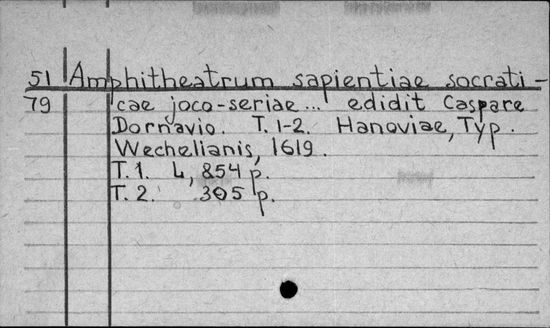 51 Amphitheatrum sapientiae socrati-
79 cae joco-seriae... edidit Caspare
Dornavio. T. 1-2. Hanoviae, Typ.
Wechelianis, 1619.
T. 1. L, 854 p.
T. 2. 305 p.